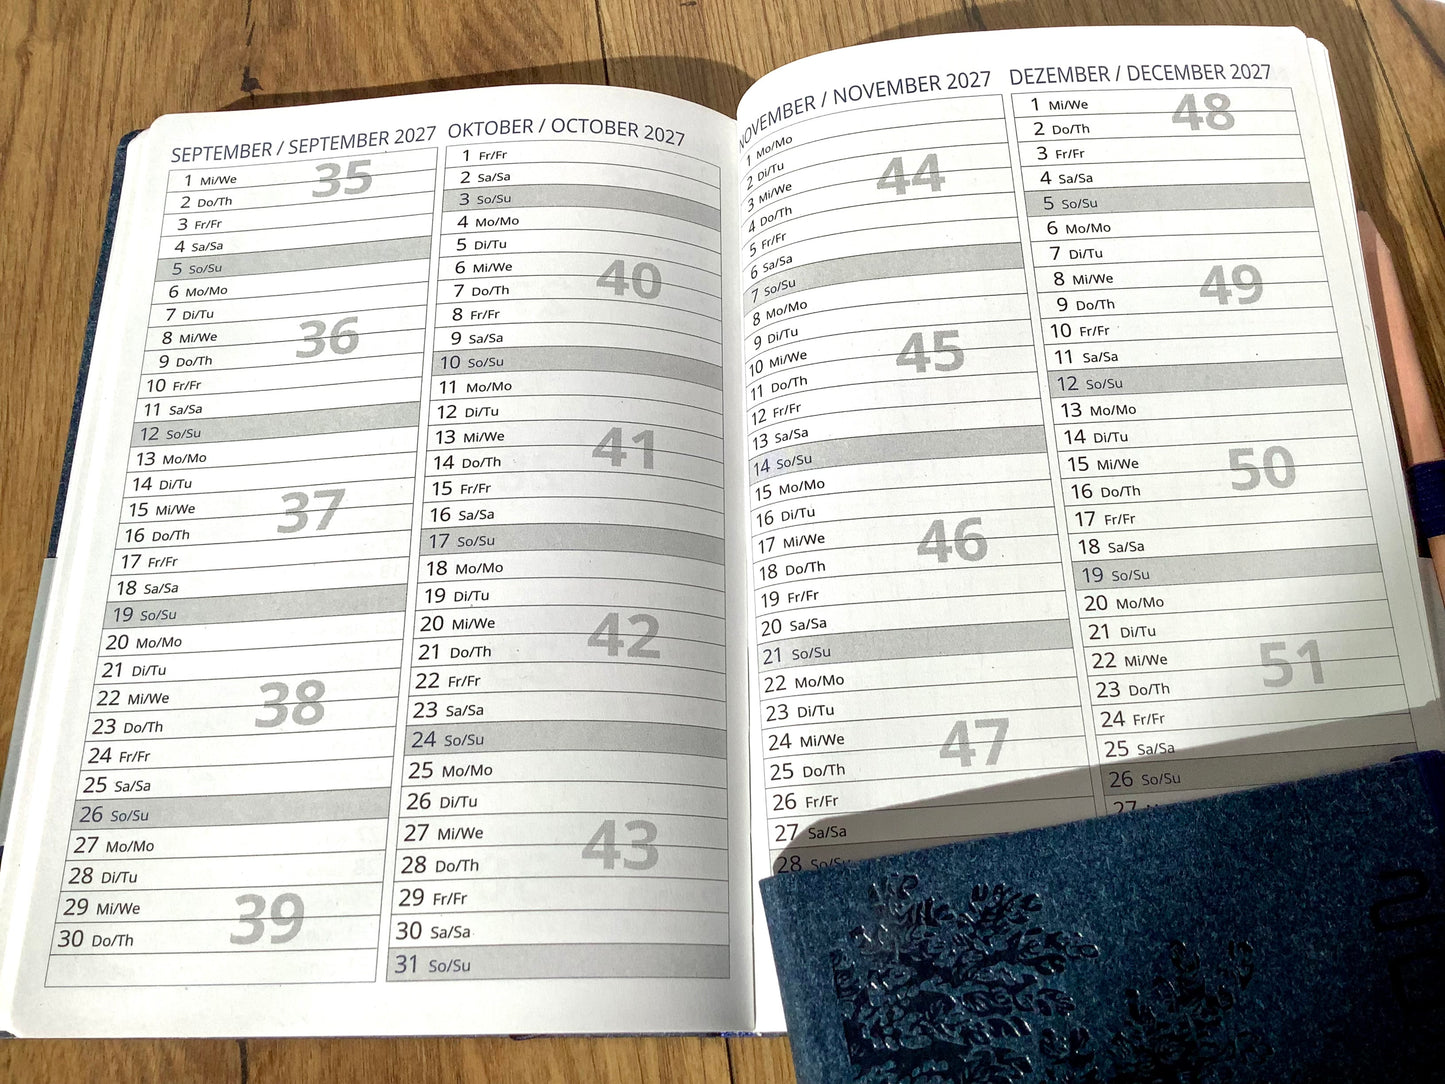 SEPTEMBER / SEPTEMBER 2027
1 Mi/We 35
2 Do/Th
3 Fr/Fr
4 Sa/Sa
5 So/Su
6 Mo/Mo
7 Di/Tu
8 Mi/We 36
9 Do/Th
10 Fr/Fr
11 Sa/Sa
12 So/Su
13 Mo/Mo
14 Di/Tu
15 Mi/We 37
16 Do/Th
17 Fr/Fr
18 Sa/Sa
19 So/Su
20 Mo/Mo
21 Di/Tu
22 Mi/We 38
23 Do/Th
24 Fr/Fr
25 Sa/Sa
26 So/Su
27 Mo/Mo
28 Di/Tu
29 Mi/We 39
30 Do/Th
OKTOBER / OCTOBER 2027
1 Fr/Fr
2 Sa/Sa
3 So/Su
4 Mo/Mo
5 Di/Tu
6 Mi/We 40
7 Do/Th
8 Fr/Fr
9 Sa/Sa
10 So/Su
11 Mo/Mo
12 Di/Tu
13 Mi/We 41
14 Do/Th
15 Fr/Fr
16 Sa/Sa
17 So/Su
18 Mo/Mo
19 Di/Tu
20 Mi/We 42
21 Do/Th
22 Fr/Fr
23 Sa/Sa
24 So/Su
25 Mo/Mo
26 Di/Tu
27 Mi/We 43
28 Do/Th
29 Fr/Fr
30 Sa/Sa
31 So/Su
NOVEMBER / NOVEMBER 2027
1 Mo/Mo
2 Di/Tu
3 Mi/We 44
4 Do/Th
5 Fr/Fr
6 Sa/Sa
7 So/Su
8 Mo/Mo
9 Di/Tu
10 Mi/We 45
11 Do/Th
12 Fr/Fr
13 Sa/Sa
14 So/Su
15 Mo/Mo
16 Di/Tu
17 Mi/We 46
18 Do/Th
19 Fr/Fr
20 Sa/Sa
21 So/Su
22 Mo/Mo
23 Di/Tu
24 Mi/We 47
25 Do/Th
26 Fr/Fr
27 Sa/Sa
28 So/Su
DEZEMBER / DECEMBER 2027
1 Mi/We 48
2 Do/Th
3 Fr/Fr
4 Sa/Sa
5 So/Su
6 Mo/Mo
7 Di/Tu
8 Mi/We 49
9 Do/Th
10 Fr/Fr
11 Sa/Sa
12 So/Su
13 Mo/Mo
14 Di/Tu
15 Mi/We 50
16 Do/Th
17 Fr/Fr
18 Sa/Sa
19 So/Su
20 Mo/Mo
21 Di/Tu
22 Mi/We 51
23 Do/Th
24 Fr/Fr
25 Sa/Sa
26 So/Su
27